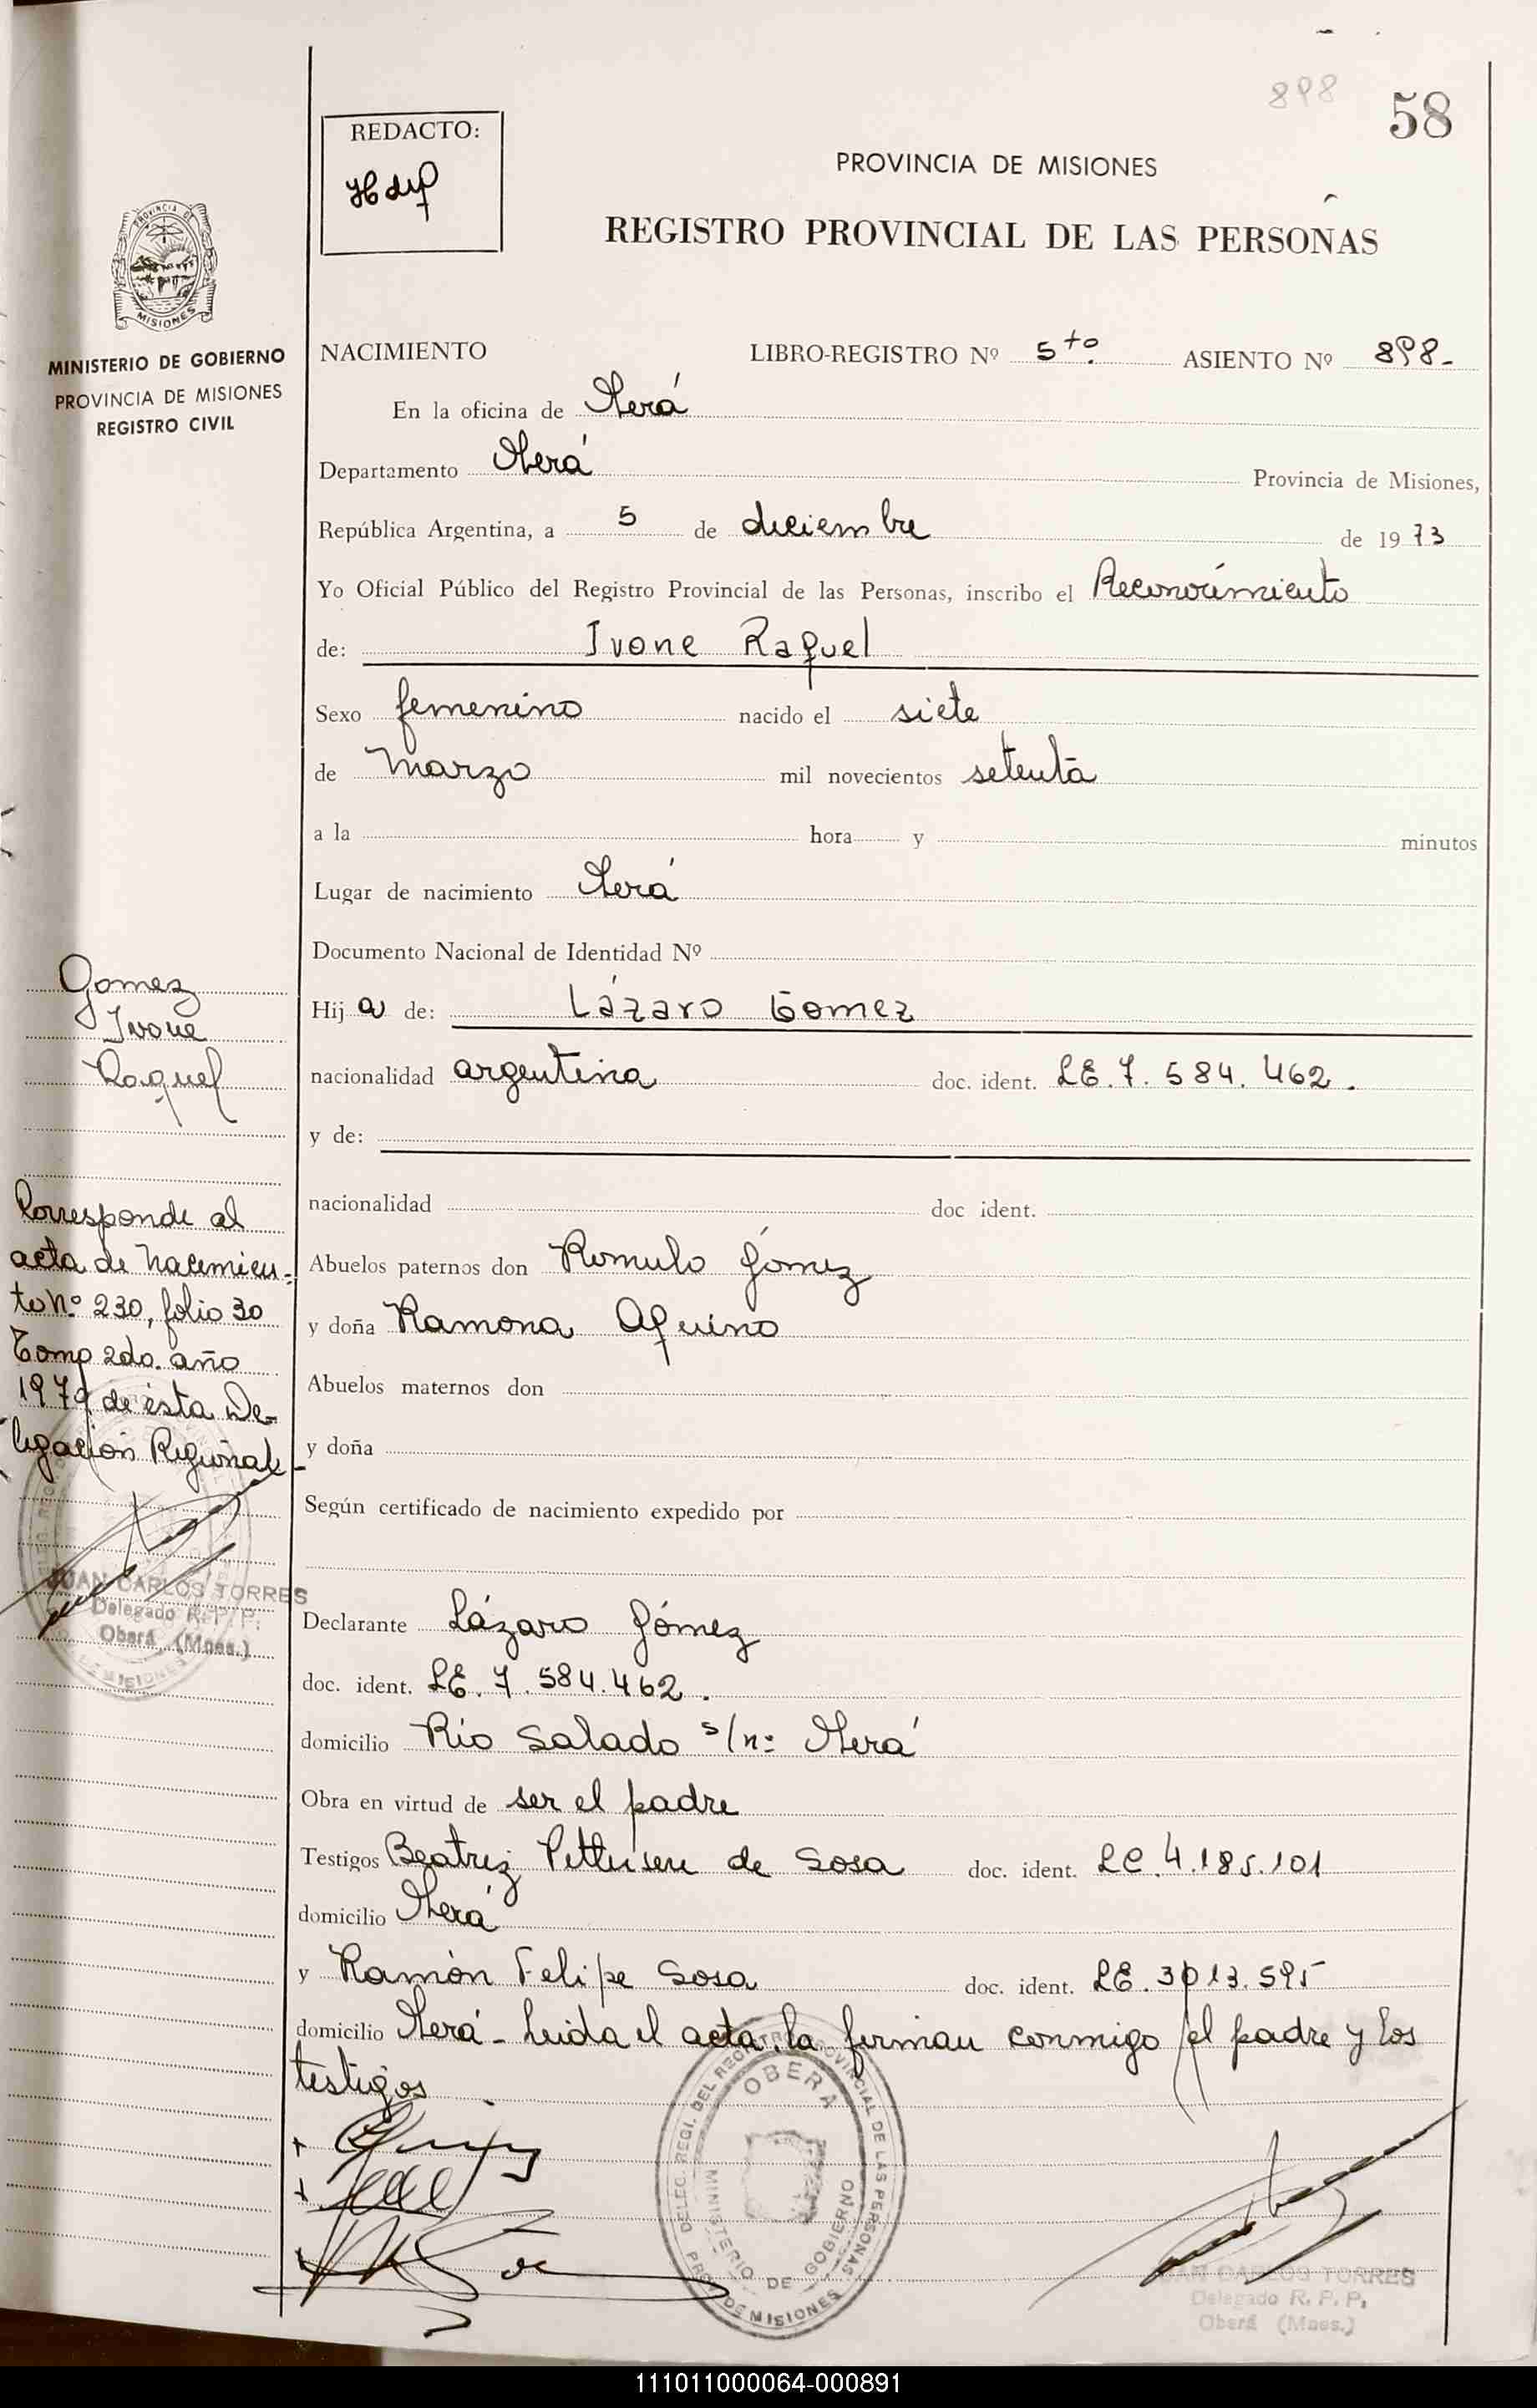 898
58
REDACTO:
PROVINCIA DE MISIONES
REGISTRO PROVINCIAL DE LAS PERSONAS
PROVINCIA DE
MISIONES
MINISTERIO DE GOBIERNO
PROVINCIA DE MISIONES
REGISTRO CIVIL
NACIMIENTO LIBRO-REGISTRO Nº 5to. ASIENTO Nº 898-
En la oficina de Oberá
Departamento Oberá Provincia de Misiones,
República Argentina, a 5 de diciembre de 1973
Yo Oficial Público del Registro Provincial de las Personas, inscribo el Reconocimiento
de: Ivone Raquel
Sexo femenino nacido el siete
de Marzo mil novecientos setenta
a la hora y minutos
Lugar de nacimiento Oberá
Documento Nacional de Identidad Nº
Hij a de: Lázaro Gomez
nacionalidad argentina doc. ident. LE. 7. 584. 462.
y de:
nacionalidad doc ident.
Abuelos paternos don Romulo Gómez
y doña Ramona Aquino
Abuelos maternos don
y doña
Según certificado de nacimiento expedido por
Declarante Lázaro Gómez
doc. ident. LE. 7. 584.462.
domicilio Río Salado s/n: Oberá
Obra en virtud de ser el padre
Testigos Beatriz de Sosa doc. ident. LC. 4.185.101
domicilio Oberá
y Ramón Felipe Sosa doc. ident. LE. 3013.595
domicilio Oberá - Leida el acta, la firman conmigo el padre y los
testigos
Gomez
Ivone
Raquel
Corresponde al
acta de Nacimien-
to Nº 230, folio 30
Tomo 2do. año
de ésta De-
legación Regional-
JUAN CARLOS TORRES
Delegado R. P. P.
Oberá (Mnes.)
DELEG. REGI. DEL REGISTRO PROVINCIAL DE LAS PERSONAS
OBERA
MINISTERIO DE GOBIERNO
PROV. DE MISIONES
JUAN CARLOS TORRES
Delegado R. P. P.
Oberá (Mnes.)
111011000064-000891